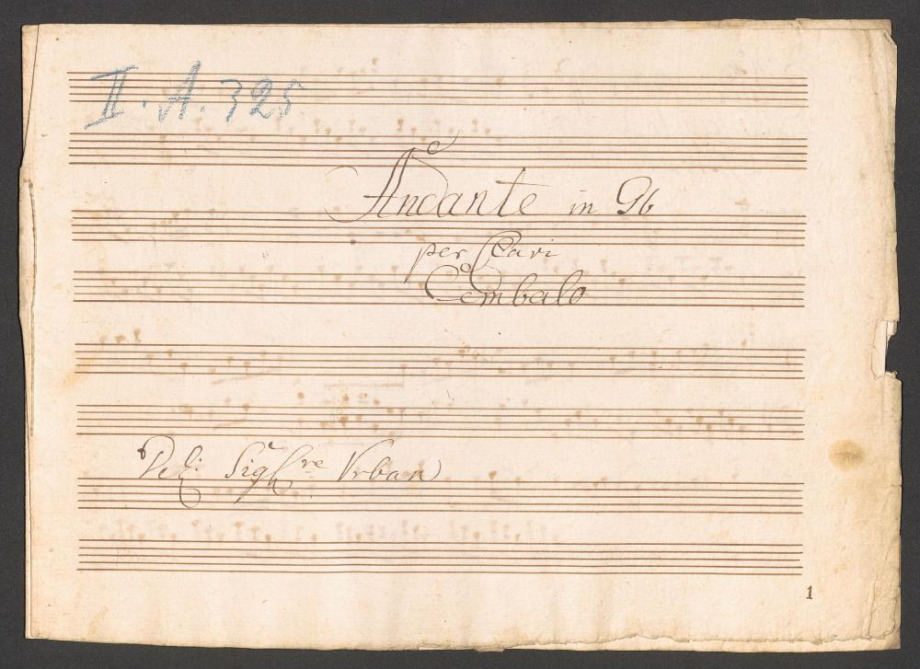 II. A. 325
Andante in Gb
per Clavi
Cembalo
Del: Sigre Urban
1